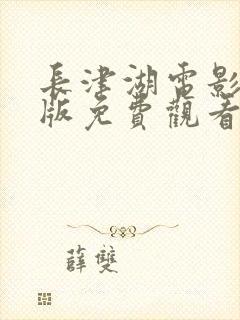 長津湖電影
版免費觀看
薛雙